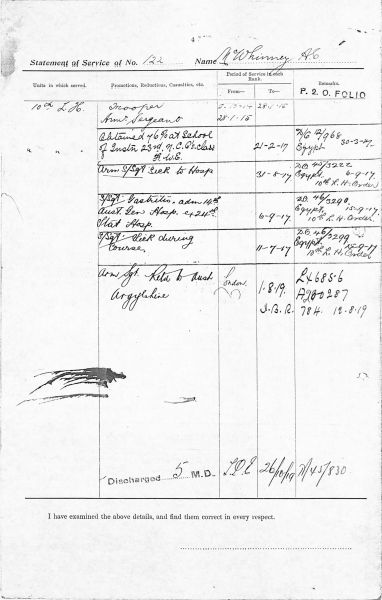 Statement of Service of No. 122 Name McWhinney, A C
Units in which served.
Promotions, Reductions, Casualties, etc.
Period of Service in each Rank.
From—
To—
Remarks.
P. & O. FOLIO
10th L. H. Trooper 28-1-15
Arm. Sergeant 28-1-15
Obtained 76% at School
of Instn 23rd N.C.O's Class 21-2-17
Egypt 30-3-17
Arm S/Sgt Sick to Hosp 31-8-17
Egypt 6-9-17
10th L. H. Order
S/Sgt Gastritis adm 14th
Aust. Gen Hosp. 24th
Stat Hosp. 6-9-17
Egypt
10th L. H. Order
S/Sgt Sick during
Course 11-9-17
Egypt
10th L. H. Order
Arm Sgt Retd to Aust
Argyllshire London 1.8.19.
784 12-8-19
Discharged 5 M.D. 26/10/19 45/830
I have examined the above details, and find them correct in every respect.